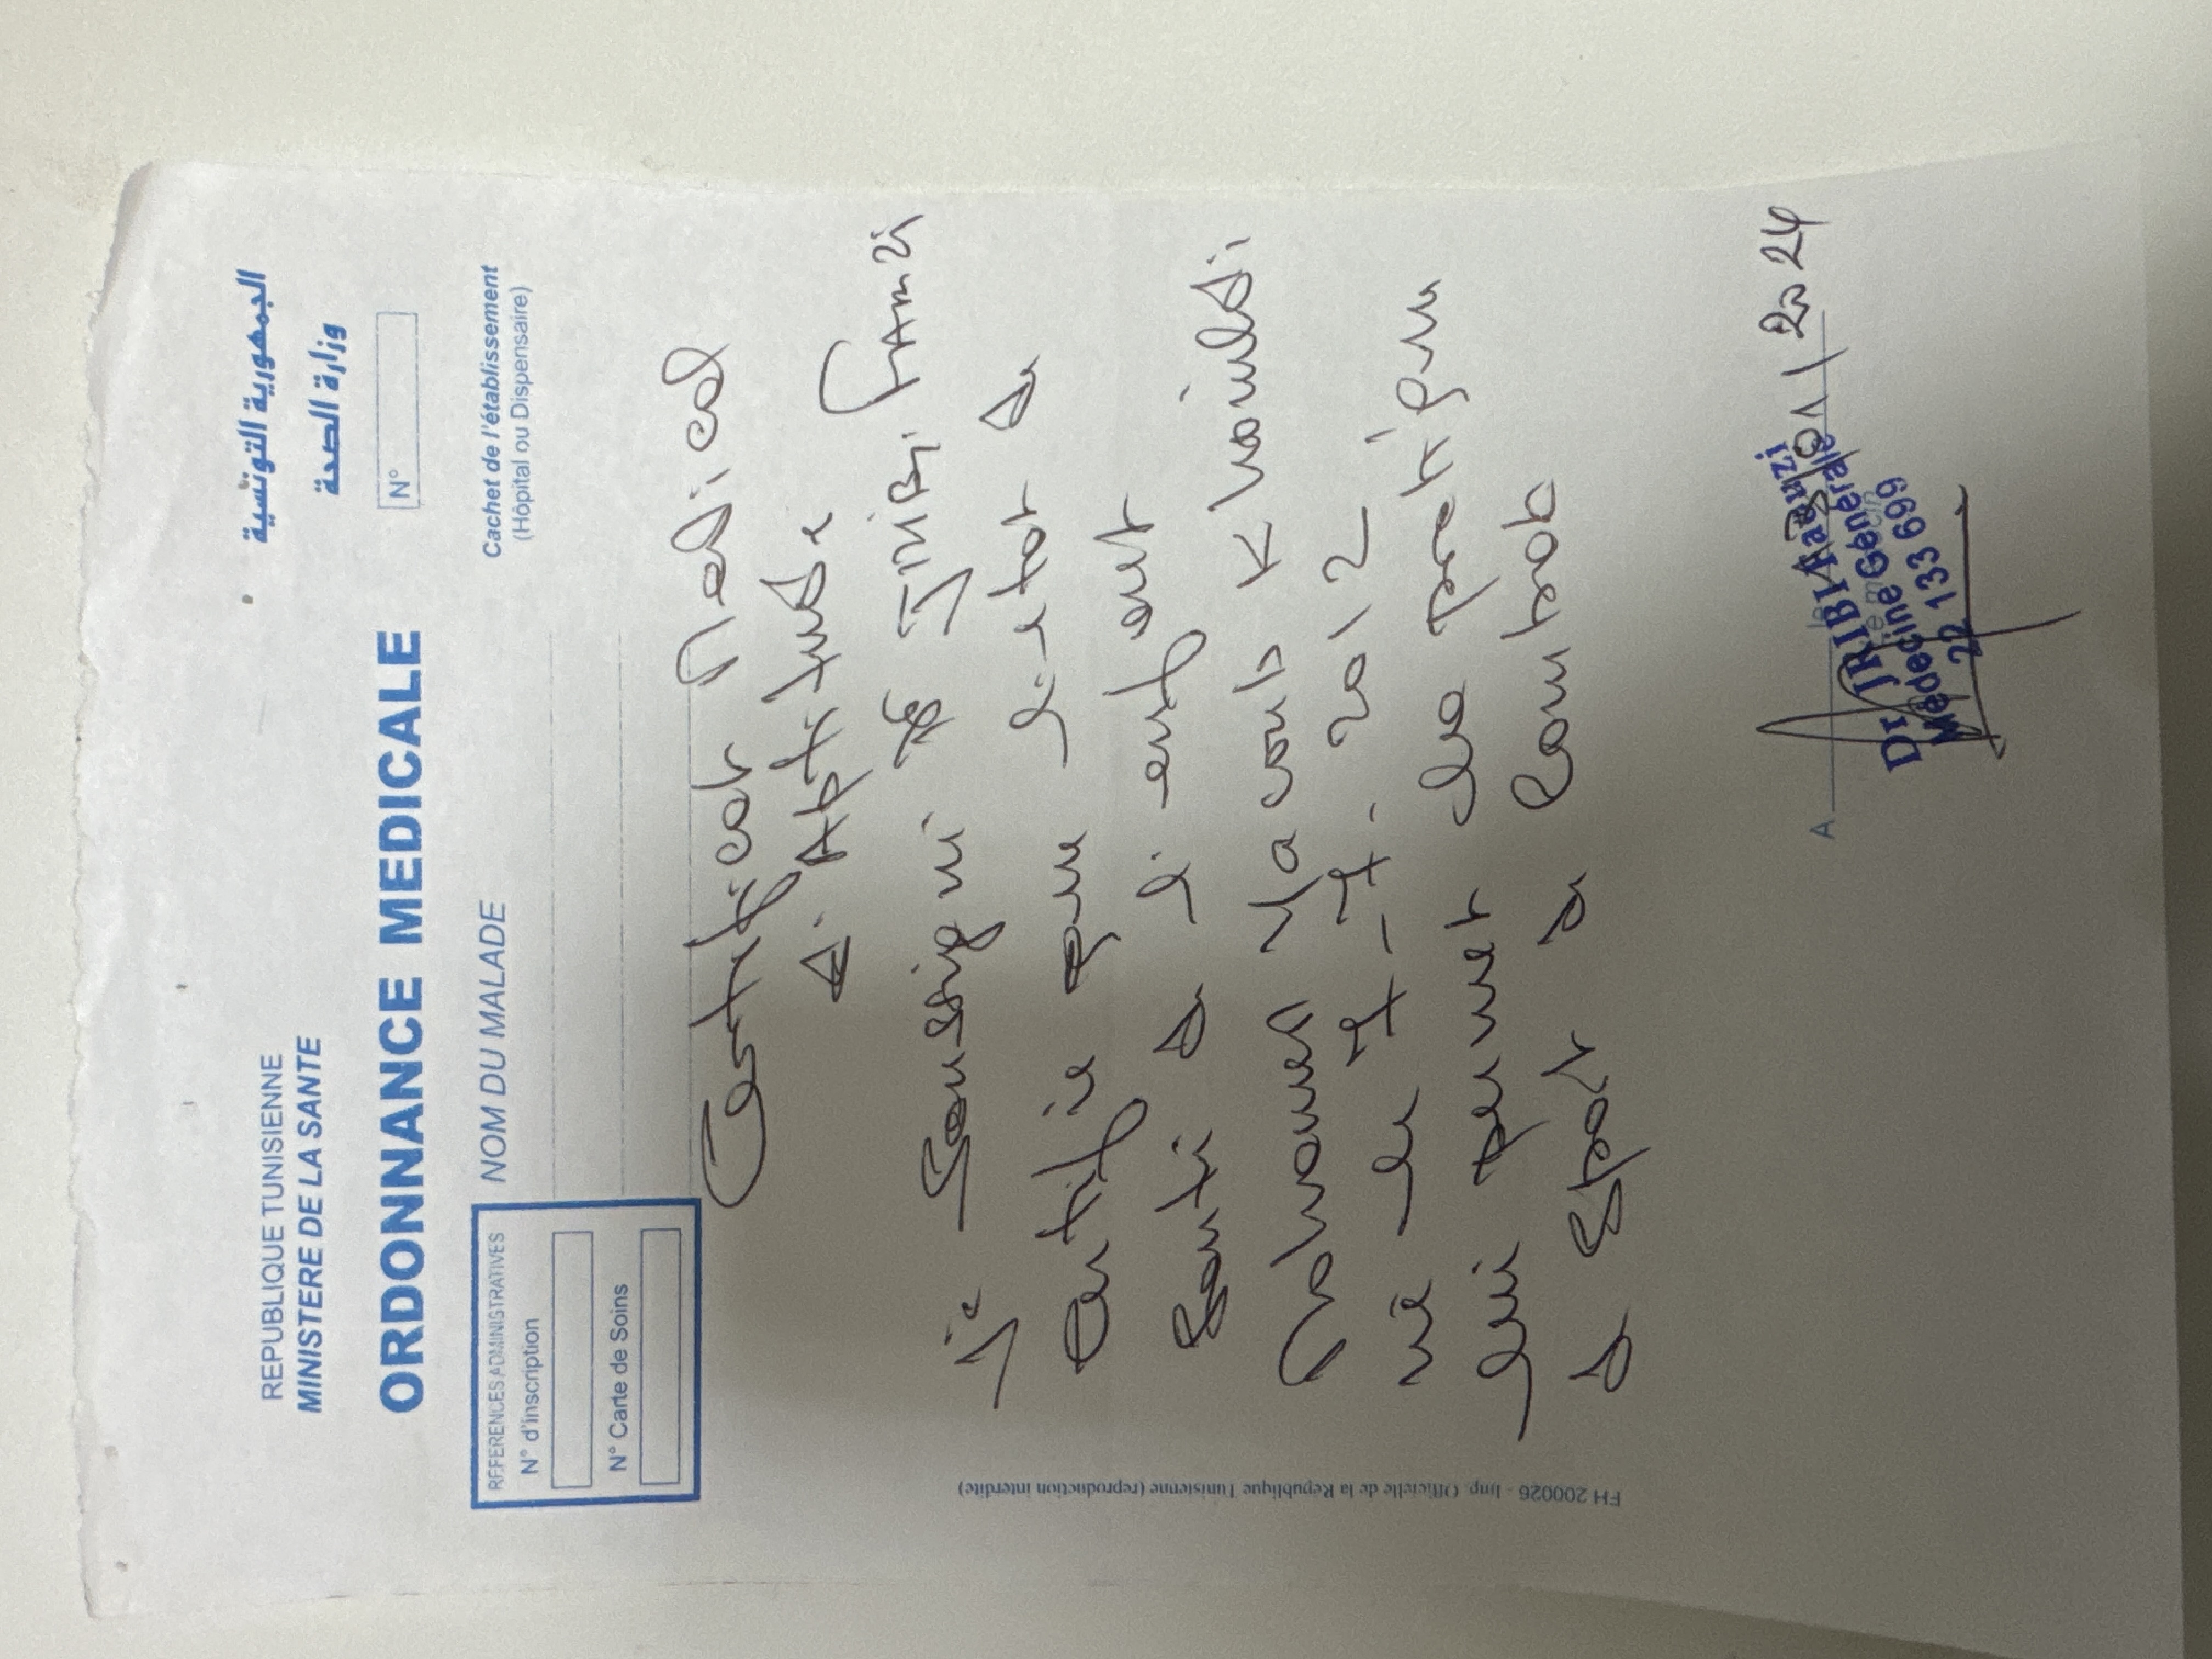 REPUBLIQUE TUNISIENNE
MINISTERE DE LA SANTE
الجمهورية التونسية
وزارة الصحة
ORDONNANCE MEDICALE
N°
REFERENCES ADMINISTRATIVES
N° d'inscription
N° Carte de Soins
NOM DU MALADE
Cachet de l'établissement
(Hôpital ou Dispensaire)
Certificat Medical
d'Aptitude
Je soussigné Dr JRIBI
certifie que l'etat de
santé de l'enfant
Mohamed
né le 7-7-2012
lui permet la pratique
de sport de combat
A
le
2024
Dr JRIBI Faouzi
Médecine Générale
22 133 699
FH 200026 - Imp. Officielle de la République Tunisienne (reproduction interdite)